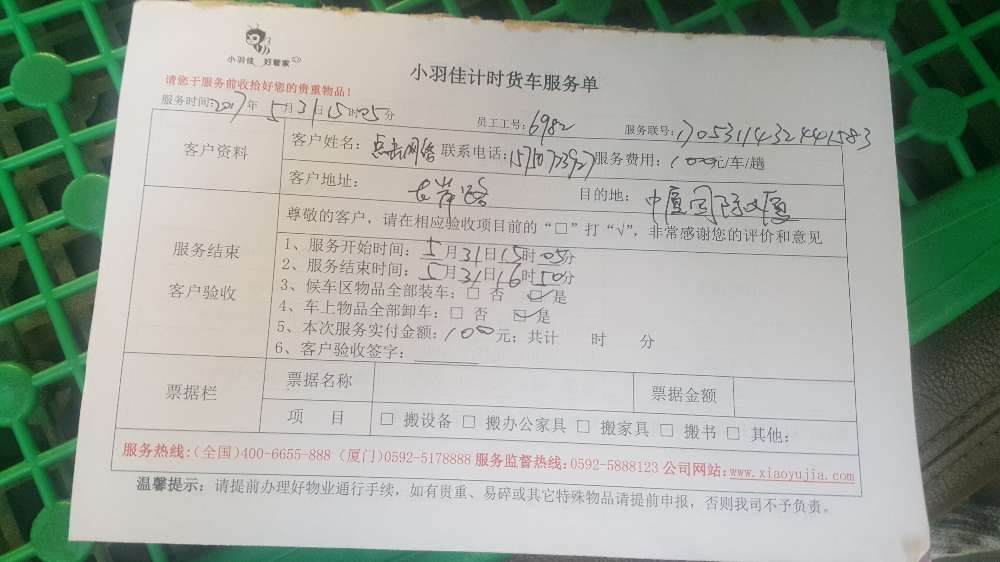 小羽佳 好管家
小羽佳计时货车服务单
请您于服务前收拾好您的贵重物品！
服务时间:2017年5月31日15时05分 员工工号:6982 服务联号:17053114324441583
客户资料
客户姓名：点击网络 联系电话:15750723927 服务费用：100元/车/趟
客户地址：长岸路 目的地：中厦国际大厦
服务结束
客户验收
尊敬的客户，请在相应验收项目前的“□”打“√”，非常感谢您的评价和意见
1、服务开始时间：5月31日15时05分
2、服务结束时间：5月31日16时50分
3、候车区物品全部装车：□ 否 ☑ 是
4、车上物品全部卸车：□ 否 ☑ 是
5、本次服务实付金额：100元；共计 时 分
6、客户验收签字：
票据栏
票据名称 票据金额
项 目 □ 搬设备 □ 搬办公家具 □ 搬家具 □ 搬书 □ 其他：
服务热线:(全国)400-6655-888 (厦门)0592-5178888 服务监督热线:0592-5888123 公司网站:www.xiaoyujia.com
温馨提示：请提前办理好物业通行手续，如有贵重、易碎或其它特殊物品请提前申报，否则我司不予负责。